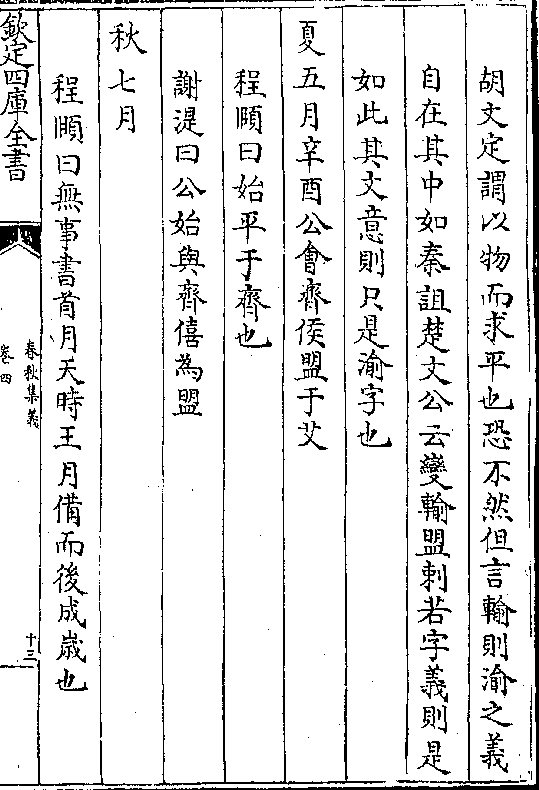 胡文定謂以物而求平也恐不然但言輸則渝之義
自在其中如秦詛楚文公云變輸盟刺若字義則是
如此其文意則只是渝字也
夏五月辛酉公會齊侯盟于艾
程頤曰始平于齊也
謝湜曰公始與齊僖為盟
秋七月
程頤曰無事書首月天時王月備而後成歲也
欽定四庫全書
春秋集義
卷四
十三